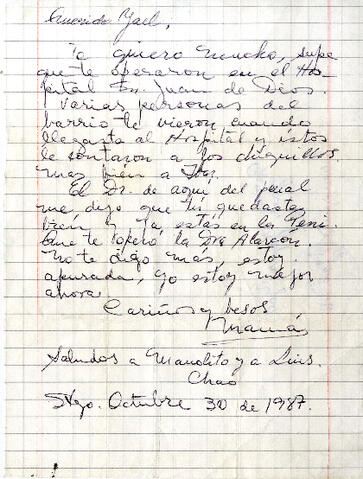 Querido Yael,
Te quiero mucho, supe
que te operaron en el Ho-
spital Sn. Juan de Dios.
Varias personas del
barrio te vieron cuando
llegaste al Hospital y éstos
le contaron a los
mas bien a
El Dr. de aquí del penal
me dijo que tú quedaste
bien y ya, estás en la Peni.
Que te operó la Dra Alarcon.
No te digo mas, estoy
apurada, yo estoy mejor
ahora.
Cariños y besos
Mamá
Saludos a Manolito y a Luis.
Chao
Stgo. Octubre 30 de 1987.